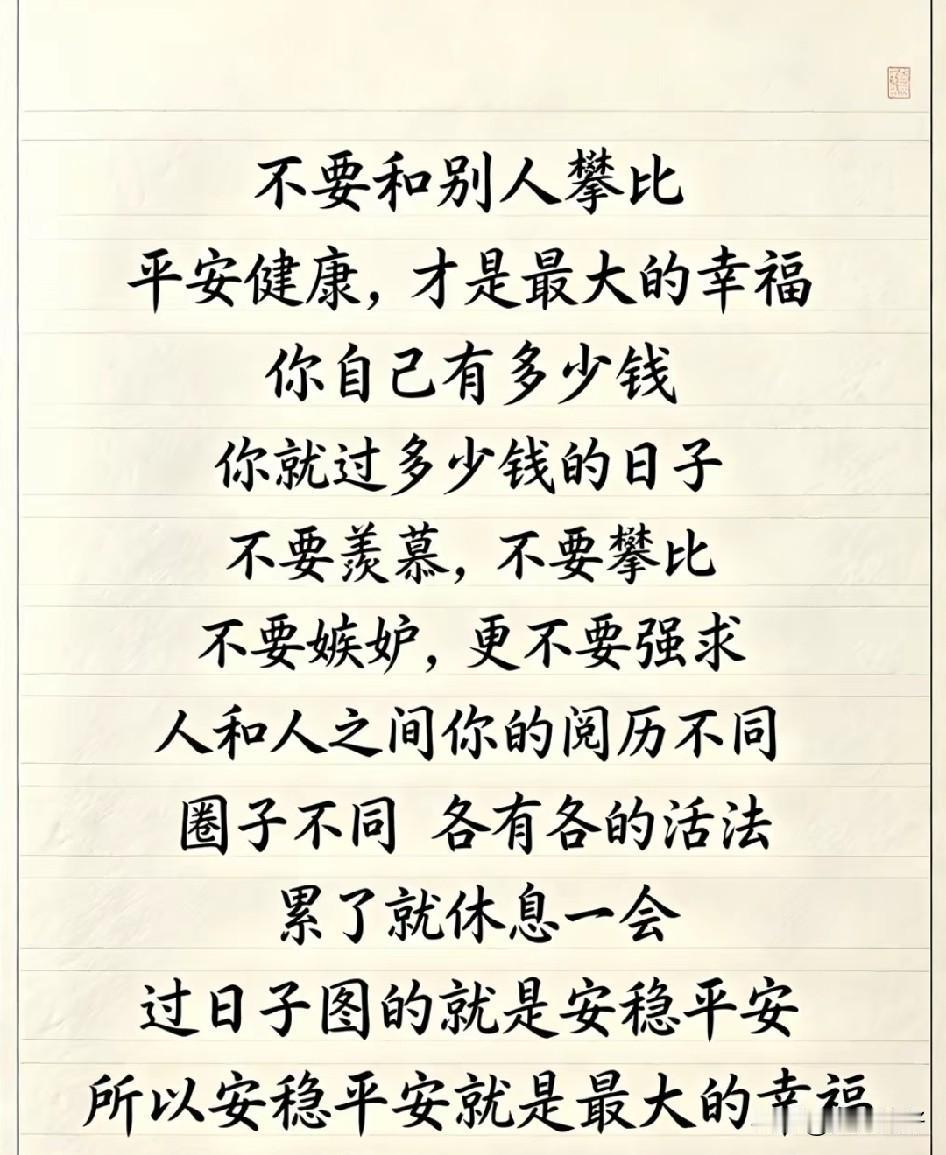 不要和别人攀比
平安健康，才是最大的幸福
你自己有多少钱
你就过多少钱的日子
不要羡慕，不要攀比
不要嫉妒，更不要强求
人和人之间你的阅历不同
圈子不同 各有各的活法
累了就休息一会
过日子图的就是安稳平安
所以安稳平安就是最大的幸福